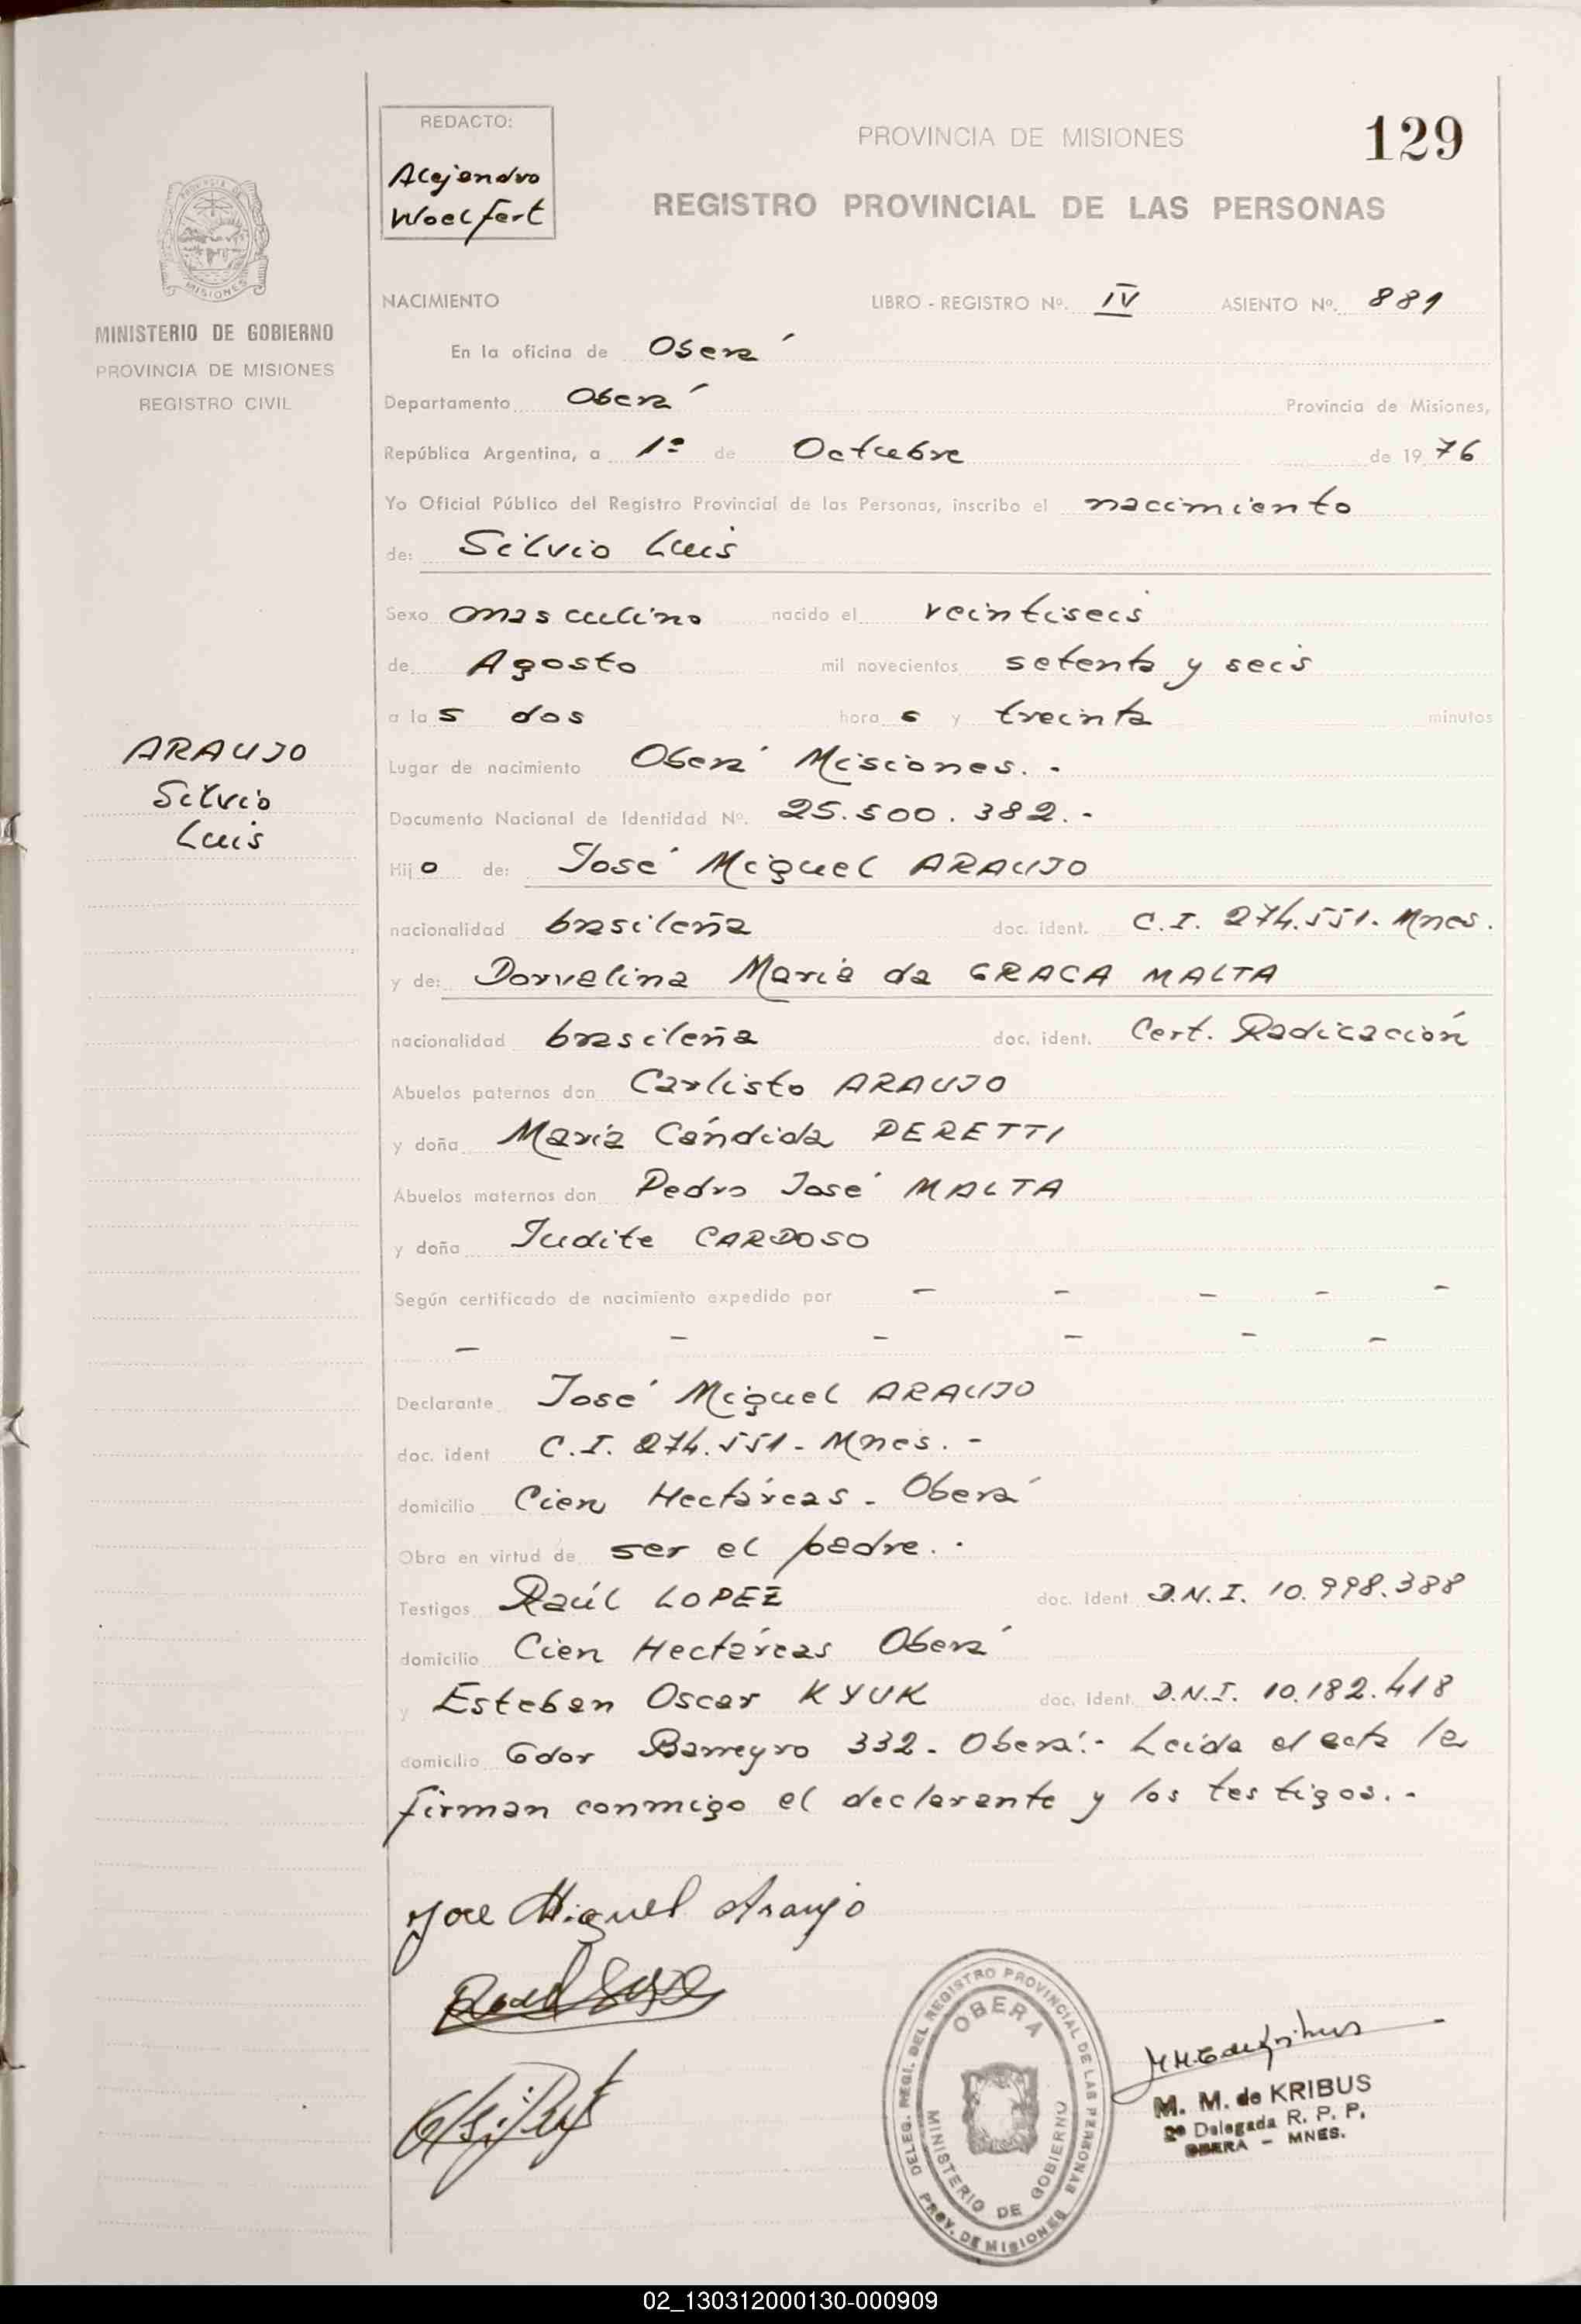 REDACTO:
Alejandro
Woelfert
PROVINCIA DE MISIONES
129
REGISTRO PROVINCIAL DE LAS PERSONAS
PROVINCIA DE
MISIONES
MINISTERIO DE GOBIERNO
PROVINCIA DE MISIONES
REGISTRO CIVIL
NACIMIENTO LIBRO - REGISTRO Nº. IV ASIENTO Nº. 881
En la oficina de Oberá
Departamento Oberá Provincia de Misiones,
República Argentina, a 1º de Octubre de 1976
Yo Oficial Público del Registro Provincial de las Personas, inscribo el nacimiento
de: Silvio Luis
Sexo masculino nacido el veintiseis
de Agosto mil novecientos setenta y seis
a las dos hora s y treinta minutos
ARAUJO
Silvio
Luis
Lugar de nacimiento Oberá Misiones. -
Documento Nacional de Identidad Nº. 25.500.382. -
Hijo de: José Miguel ARAUJO
nacionalidad brasileña doc. ident. C.I. 274.551. Mnes.
y de: Dorvelina Maria da GRACA MALTA
nacionalidad brasileña doc. ident. Cert. Radicación
Abuelos paternos don Carlisto ARAUJO
y doña María Cándida PERETTI
Abuelos maternos don Pedro José MALTA
y doña Judite CARDOSO
Según certificado de nacimiento expedido por - - - - -
- - - - - -
Declarante José Miguel ARAUJO
doc. ident C.I. 274.551 - Mnes. -
domicilio Cien Hectáreas - Oberá
Obra en virtud de ser el padre. -
Testigos Raúl LOPEZ doc. ident. D.N.I. 10.998.388
domicilio Cien Hectáreas Oberá
y Esteban Oscar KYUK doc. ident. D.N.I. 10.182.418
domicilio Gdor Barreyro 332 - Oberá.- Leida el acta la
firman conmigo el declarante y los testigos. -
Jose Miguel Araujo
DELEG. REGI. DEL REGISTRO PROVINCIAL DE LAS PERSONAS
OBERA
MINISTERIO DE GOBIERNO
PROV. DE MISIONES
M. M. de KRIBUS
2º Delegada R. P. P.
OBERA - MNES.
02_130312000130-000909